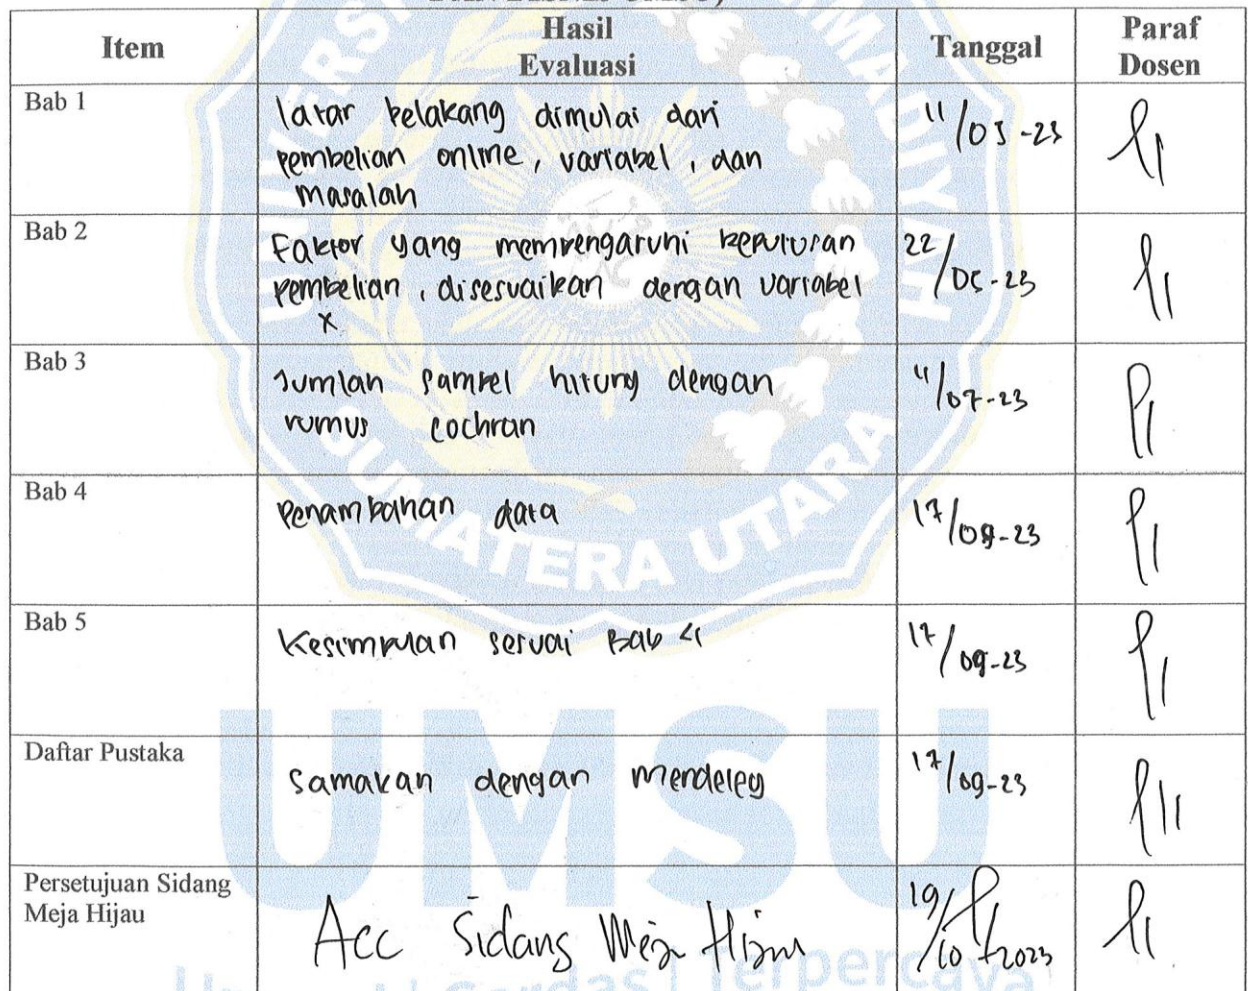 Item
Hasil
Evaluasi
Tanggal
Paraf
Dosen
Bab 1
latar belakang dimulai dari
pembelian online, variabel, dan
masalah
11/05-23
Bab 2
Faktor yang mempengaruhi keputusan
pembelian, disesuaikan dengan variabel
x
22/05-23
Bab 3
Jumlah sampel hitung dengan
rumus cochran
11/07-23
Bab 4
Penambahan data
17/09-23
Bab 5
Kesimpulan sesuai Bab 4
17/09-23
Daftar Pustaka
Samakan dengan mendeley
17/09-23
Persetujuan Sidang
Meja Hijau
Acc Sidang Meja Hijau
19/10-2023
UMSU
SUMATERA UTARA
Terpercaya